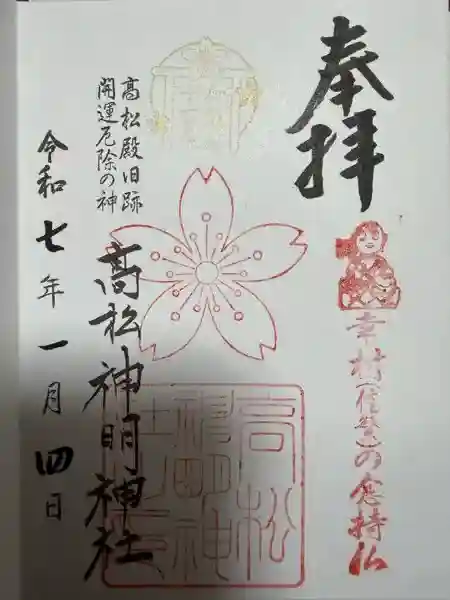 奉拝
幸村(信繁)の念持仏
高松殿旧跡
開運厄除の神
髙松神明神社
令和七年一月四日
高松
神明神
社之印